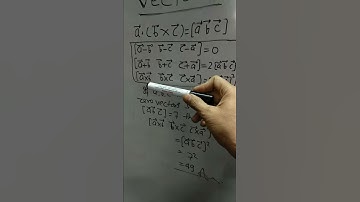 VECTOR
a⃗·(b⃗×c⃗)=[a⃗ b⃗ c⃗]
[a⃗-b⃗ b⃗-c⃗ c⃗-a⃗]=0
[a⃗+b⃗ b⃗+c⃗ c⃗+a⃗]=2[a⃗ b⃗ c⃗]
[a⃗×b⃗ b⃗×c⃗ c⃗×a⃗]=
vectors
[a⃗ b⃗ c⃗]=7
[a⃗×b⃗ b⃗×c⃗ c⃗×a⃗]
=[a⃗ b⃗ c⃗]²
= 7²
=49